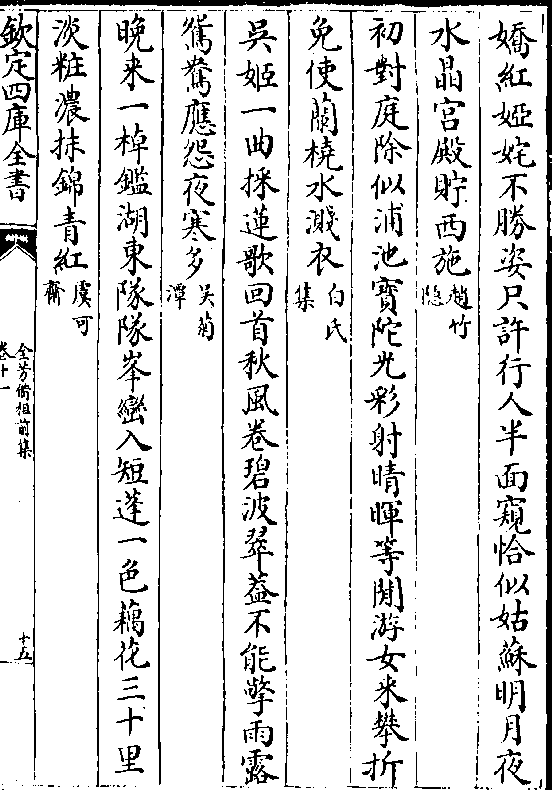 嬌紅婭姹不勝姿只許行人半面窺恰似姑蘇明月夜
水晶宮殿貯西施趙竹隐
初對庭除似浦池寶陀光彩射晴暉等閒游女来攀折
免使蘭橈水濺衣白氏集
吳姬一曲採蓮歌回首秋風卷碧波翠葢不能擎雨露
鴛鴦應怨夜寒多吴菊潭
晚来一棹鑑湖東隊隊峯巒入短蓬一色藕花三十里
淡粧濃抹錦青紅虞可齋
欽定四庫全書
全芳備祖前集
卷十一
十五